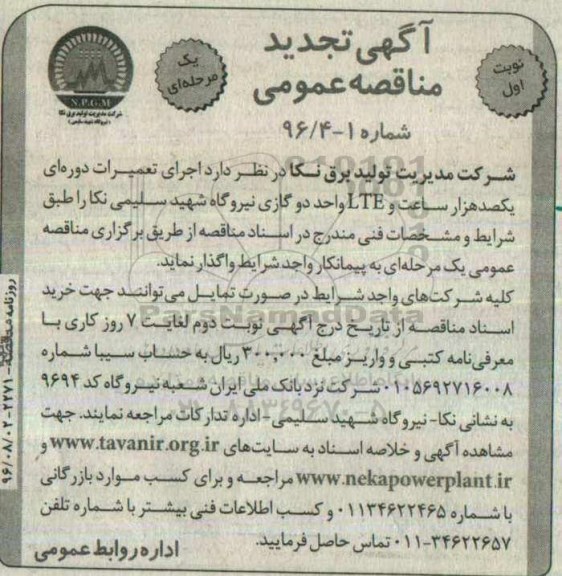 آگهی تجدید
مناقصه عمومی
شماره ۱-۹۶/۴
نوبت
اول
یک
مرحله‌ای
N.P.G.M
شرکت مدیریت تولید برق نکا
(نیروگاه شهید سلیمی)
شرکت مدیریت تولید برق نکا در نظر دارد اجرای تعمیرات دوره‌ای
یکصدهزار ساعت و LTE واحد دو گازی نیروگاه شهید سلیمی نکا را طبق
شرایط و مشخصات فنی مندرج در اسناد مناقصه از طریق برگزاری مناقصه
عمومی یک مرحله‌ای به پیمانکار واجد شرایط واگذار نماید.
کلیه شرکت‌های واجد شرایط در صورت تمایل می‌توانند جهت خرید
اسناد مناقصه از تاریخ درج آگهی نوبت دوم لغایت ۷ روز کاری با
معرفی‌نامه کتبی و واریز مبلغ ۳۰۰,۰۰۰ ریال به حساب سیبا شماره
۰۱۰۵۶۹۲۷۱۶۰۰۸ شرکت نزد بانک ملی ایران شعبه نیروگاه کد ۹۶۹۴
به نشانی نکا- نیروگاه شهید سلیمی- اداره تدارکات مراجعه نمایند. جهت
مشاهده آگهی و خلاصه اسناد به سایت‌های www.tavanir.org.ir و
www.nekapowerplant.ir مراجعه و برای کسب موارد بازرگانی
با شماره ۰۱۱۳۴۶۲۲۴۶۵ و کسب اطلاعات فنی بیشتر با شماره تلفن
۰۱۱-۳۴۶۲۲۶۵۷ تماس حاصل فرمایید.
اداره روابط عمومی
ParsNamadData